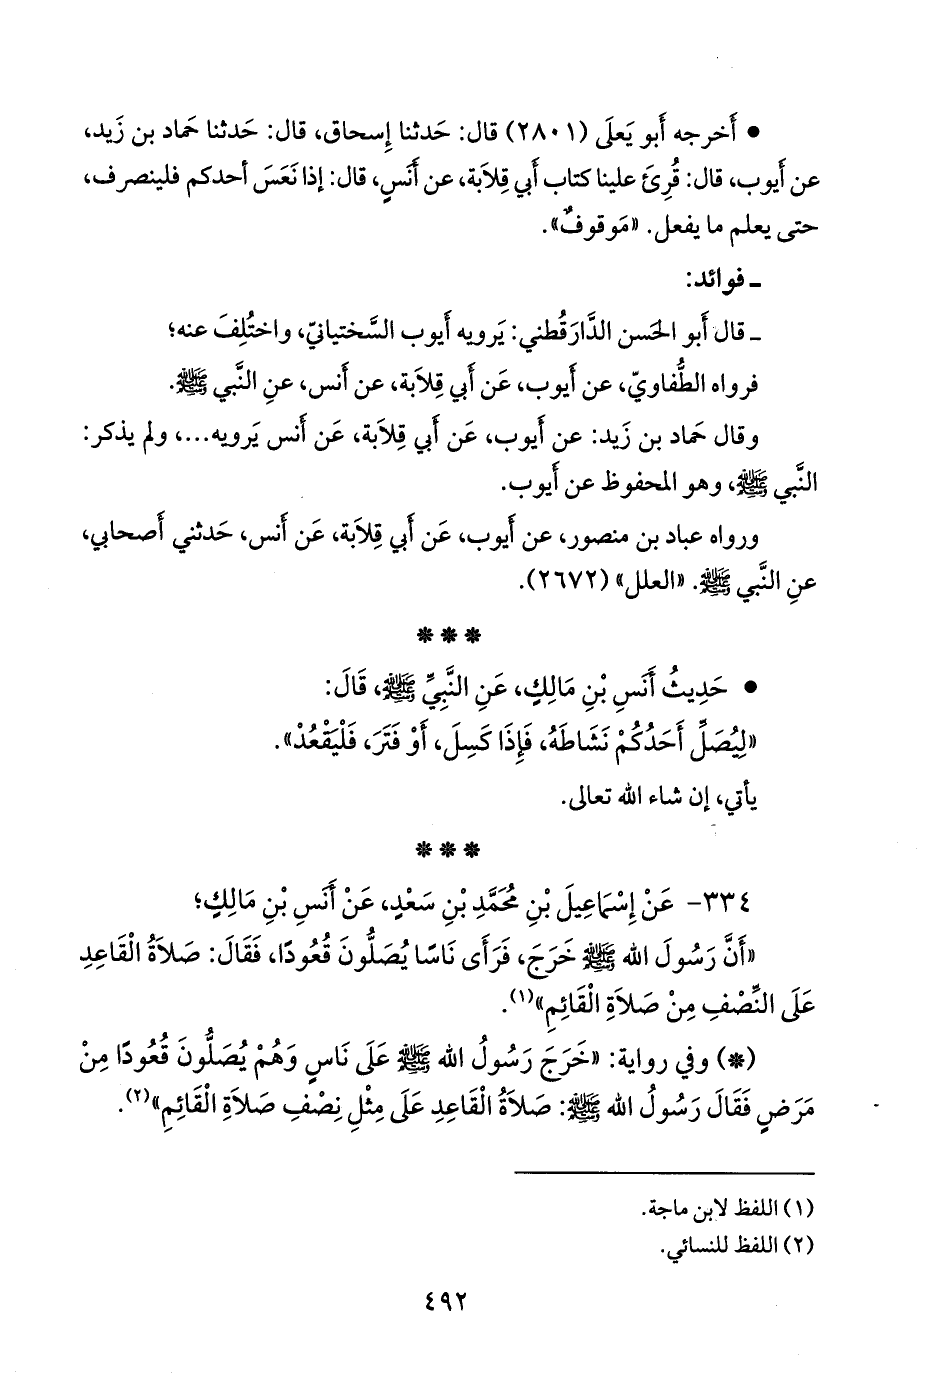 • أَخرجه أَبو يَعلَى (٢٨٠١) قال: حَدثنا إِسحاق، قال: حَدثنا حَماد بن زَيد،
عن أَيوب، قال: قُرِئَ علينا كتاب أَبي قِلاَبة، عن أَنَسٍ، قال: إِذا نَعَسَ أَحدكم فلينصرف،
حتى يعلم ما يفعل. «مَوقوفٌ».
ـ فوائد:
ـ قال أَبو الحَسن الدَّارَقُطني: يَرويه أَيوب السَّختيانيّ، واختُلِفَ عنه؛
فرواه الطُّفاويّ، عن أَيوب، عَن أَبي قِلاَبة، عن أَنس، عنِ النَّبي ﷺ.
وقال حَماد بن زَيد: عن أَيوب، عَن أَبي قِلاَبة، عَن أَنس يَرويه...، ولم يذكر:
النَّبي ﷺ، وهو المحفوظ عن أَيوب.
ورواه عباد بن منصور، عن أَيوب، عَن أَبي قِلاَبة، عَن أَنس، حَدثني أَصحابي،
عنِ النَّبي ﷺ. «العلل» (٢٦٧٢).
* * *
• حَدِيثُ أَنَسِ بْنِ مَالِكٍ، عَنِ النَّبِيِّ ﷺ، قَالَ:
«لِيُصَلِّ أَحَدُكُمْ نَشَاطَهُ، فَإِذَا كَسِلَ، أَوْ فَتَرَ، فَلْيَقْعُدْ».
يأتي، إن شاء الله تعالى.
* * *
٣٣٤- عَنْ إِسْمَاعِيلَ بْنِ مُحَمَّدِ بْنِ سَعْدٍ، عَنْ أَنَسِ بْنِ مَالِكٍ؛
«أَنَّ رَسُولَ الله ﷺ خَرَجَ، فَرَأَى نَاسًا يُصَلُّونَ قُعُودًا، فَقَالَ: صَلاَةُ الْقَاعِدِ
عَلَى النِّصْفِ مِنْ صَلاَةِ الْقَائِمِ»(١).
(*) وفي رواية: «خَرَجَ رَسُولُ الله ﷺ عَلَى نَاسٍ وَهُمْ يُصَلُّونَ قُعُودًا مِنْ
مَرَضٍ فَقَالَ رَسُولُ الله ﷺ: صَلاَةُ الْقَاعِدِ عَلَى مِثْلِ نِصْفِ صَلاَةِ الْقَائِمِ»(٢).
(١) اللفظ لابن ماجة.
(٢) اللفظ للنسائي.
٤٩٢